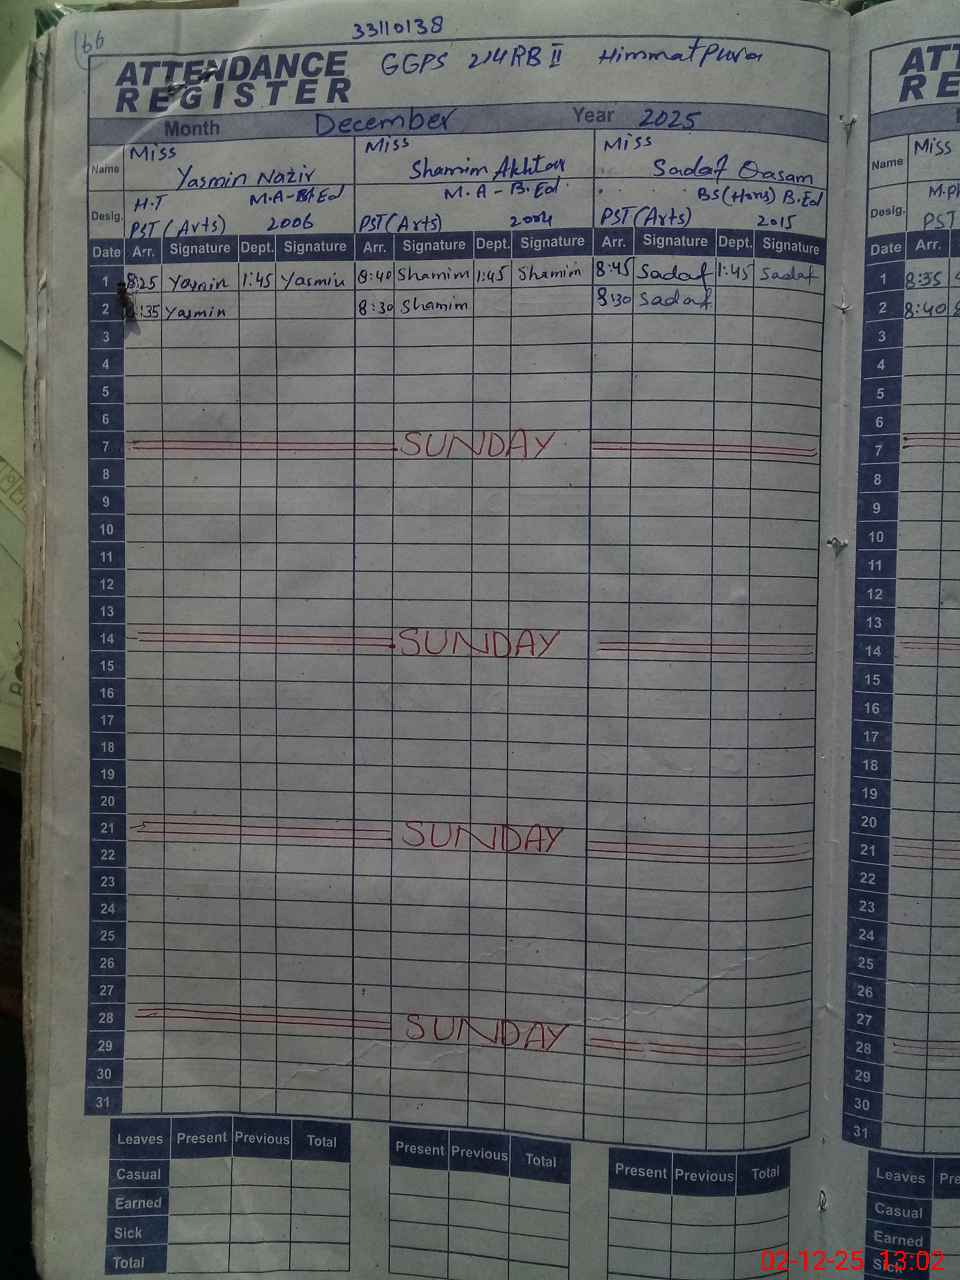 166
33110138
ATTENDANCE REGISTER GGPS 214RB II Himmatpura
Month December Year 2025
Name Miss Yasmin Nazir Miss Shamim Akhtar Miss Sadaf Qasam
Desig. H.T M.A-B.Ed M.A-B.Ed. BS(Hons) B.Ed
PST(Arts) 2006 PST(Arts) 2004 PST(Arts) 2015
Date Arr. Signature Dept. Signature Arr. Signature Dept. Signature Arr. Signature Dept. Signature
1 8:25 Yasmin 1:45 Yasmin 8:40 Shamim 1:45 Shamim 8:45 Sadaf 1:45 Sadaf
2 :35 Yasmin 8:30 Shamim 8:30 Sadaf
3
4
5
6
7 SUNDAY
8
9
10
11
12
13
14 SUNDAY
15
16
17
18
19
20
21 SUNDAY
22
23
24
25
26
27
28 SUNDAY
29
30
31
Leaves Present Previous Total Present Previous Total Present Previous Total
Casual
Earned
Sick
Total
Name Miss
Desig.
PST
Date Arr.
1 8:35
2 8:40
3
4
5
6
7
8
9
10
11
12
13
14
15
16
17
18
19
20
21
22
23
24
25
26
27
28
29
30
31
Leaves
Casual
Earned
Sick
02-12-25 13:02